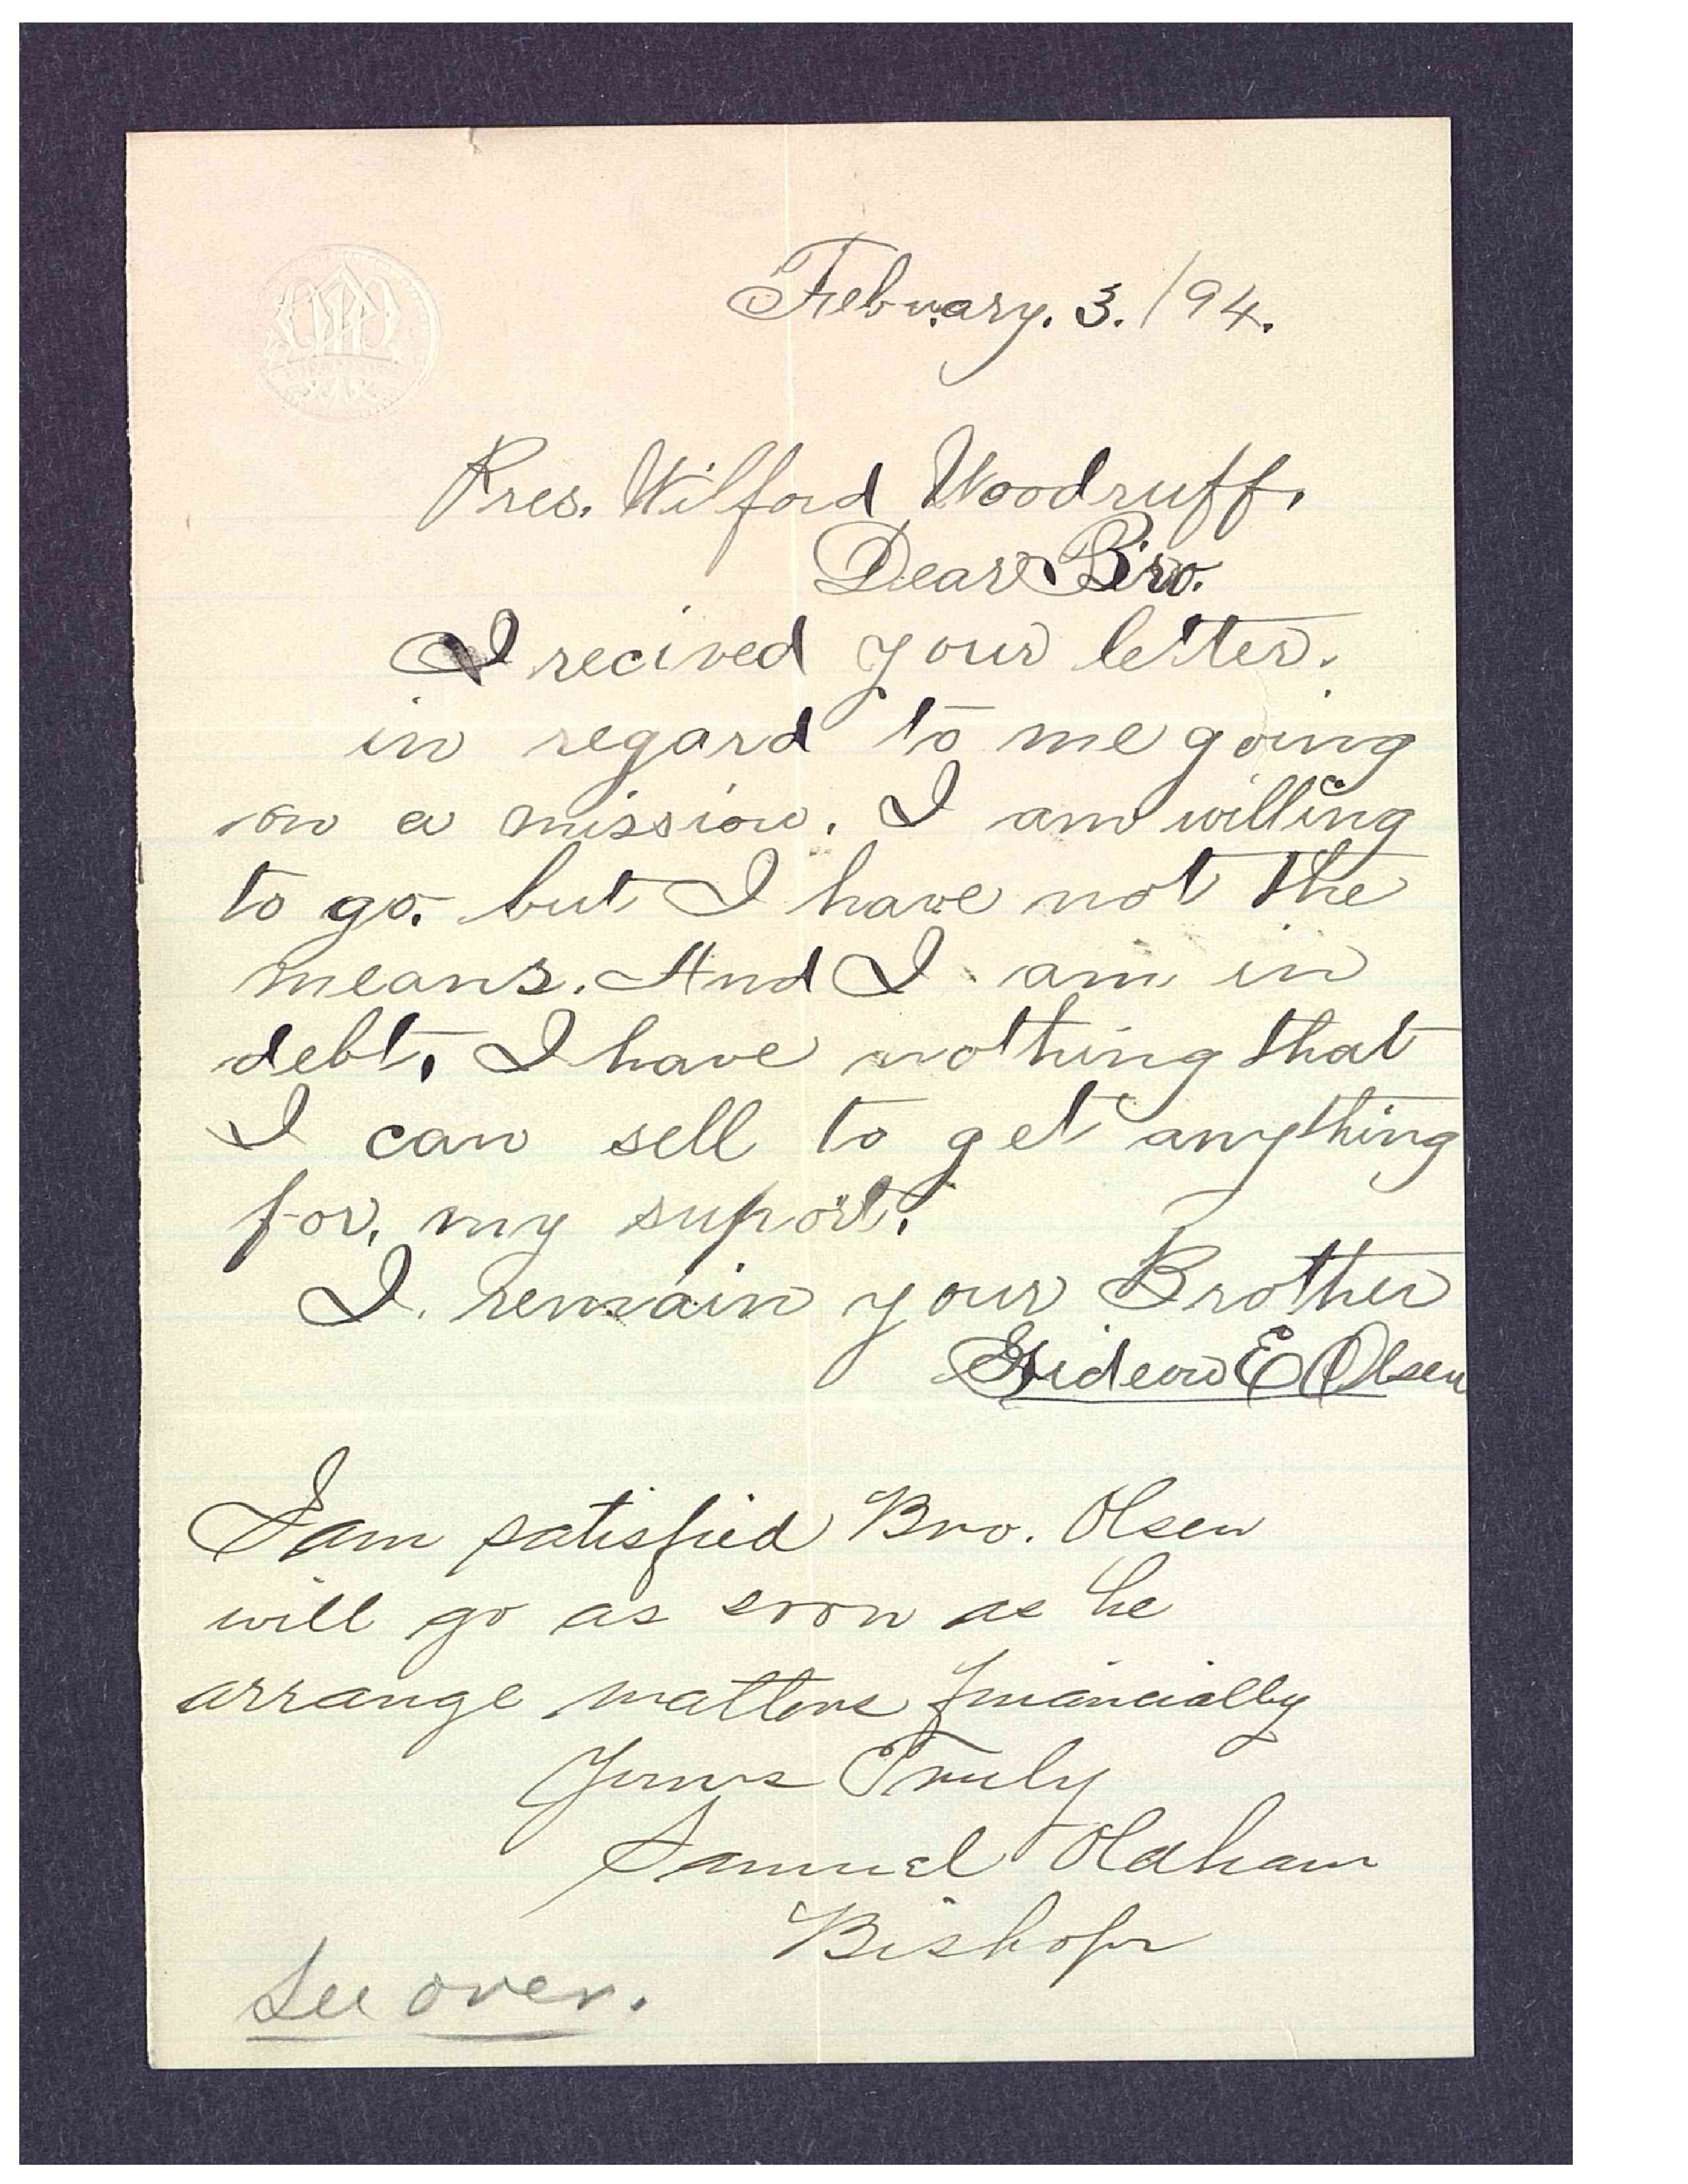 Febuary. 3. /94.
Pres. Wilford Woodruff,
Dear Bro.
I recived your letter.
in regard to me going
on a mission. I am willing
to go. but I have not the
means. And I am in
debt, I have nothing that
I can sell to get anything
for, my suport.
I. remain your Brother
Gideon E Olsen
I am satisfied Bro. Olsen
will go as soon as he
arrange matters financially
Yours Truly
Samuel Oldham
Bishop
See over.